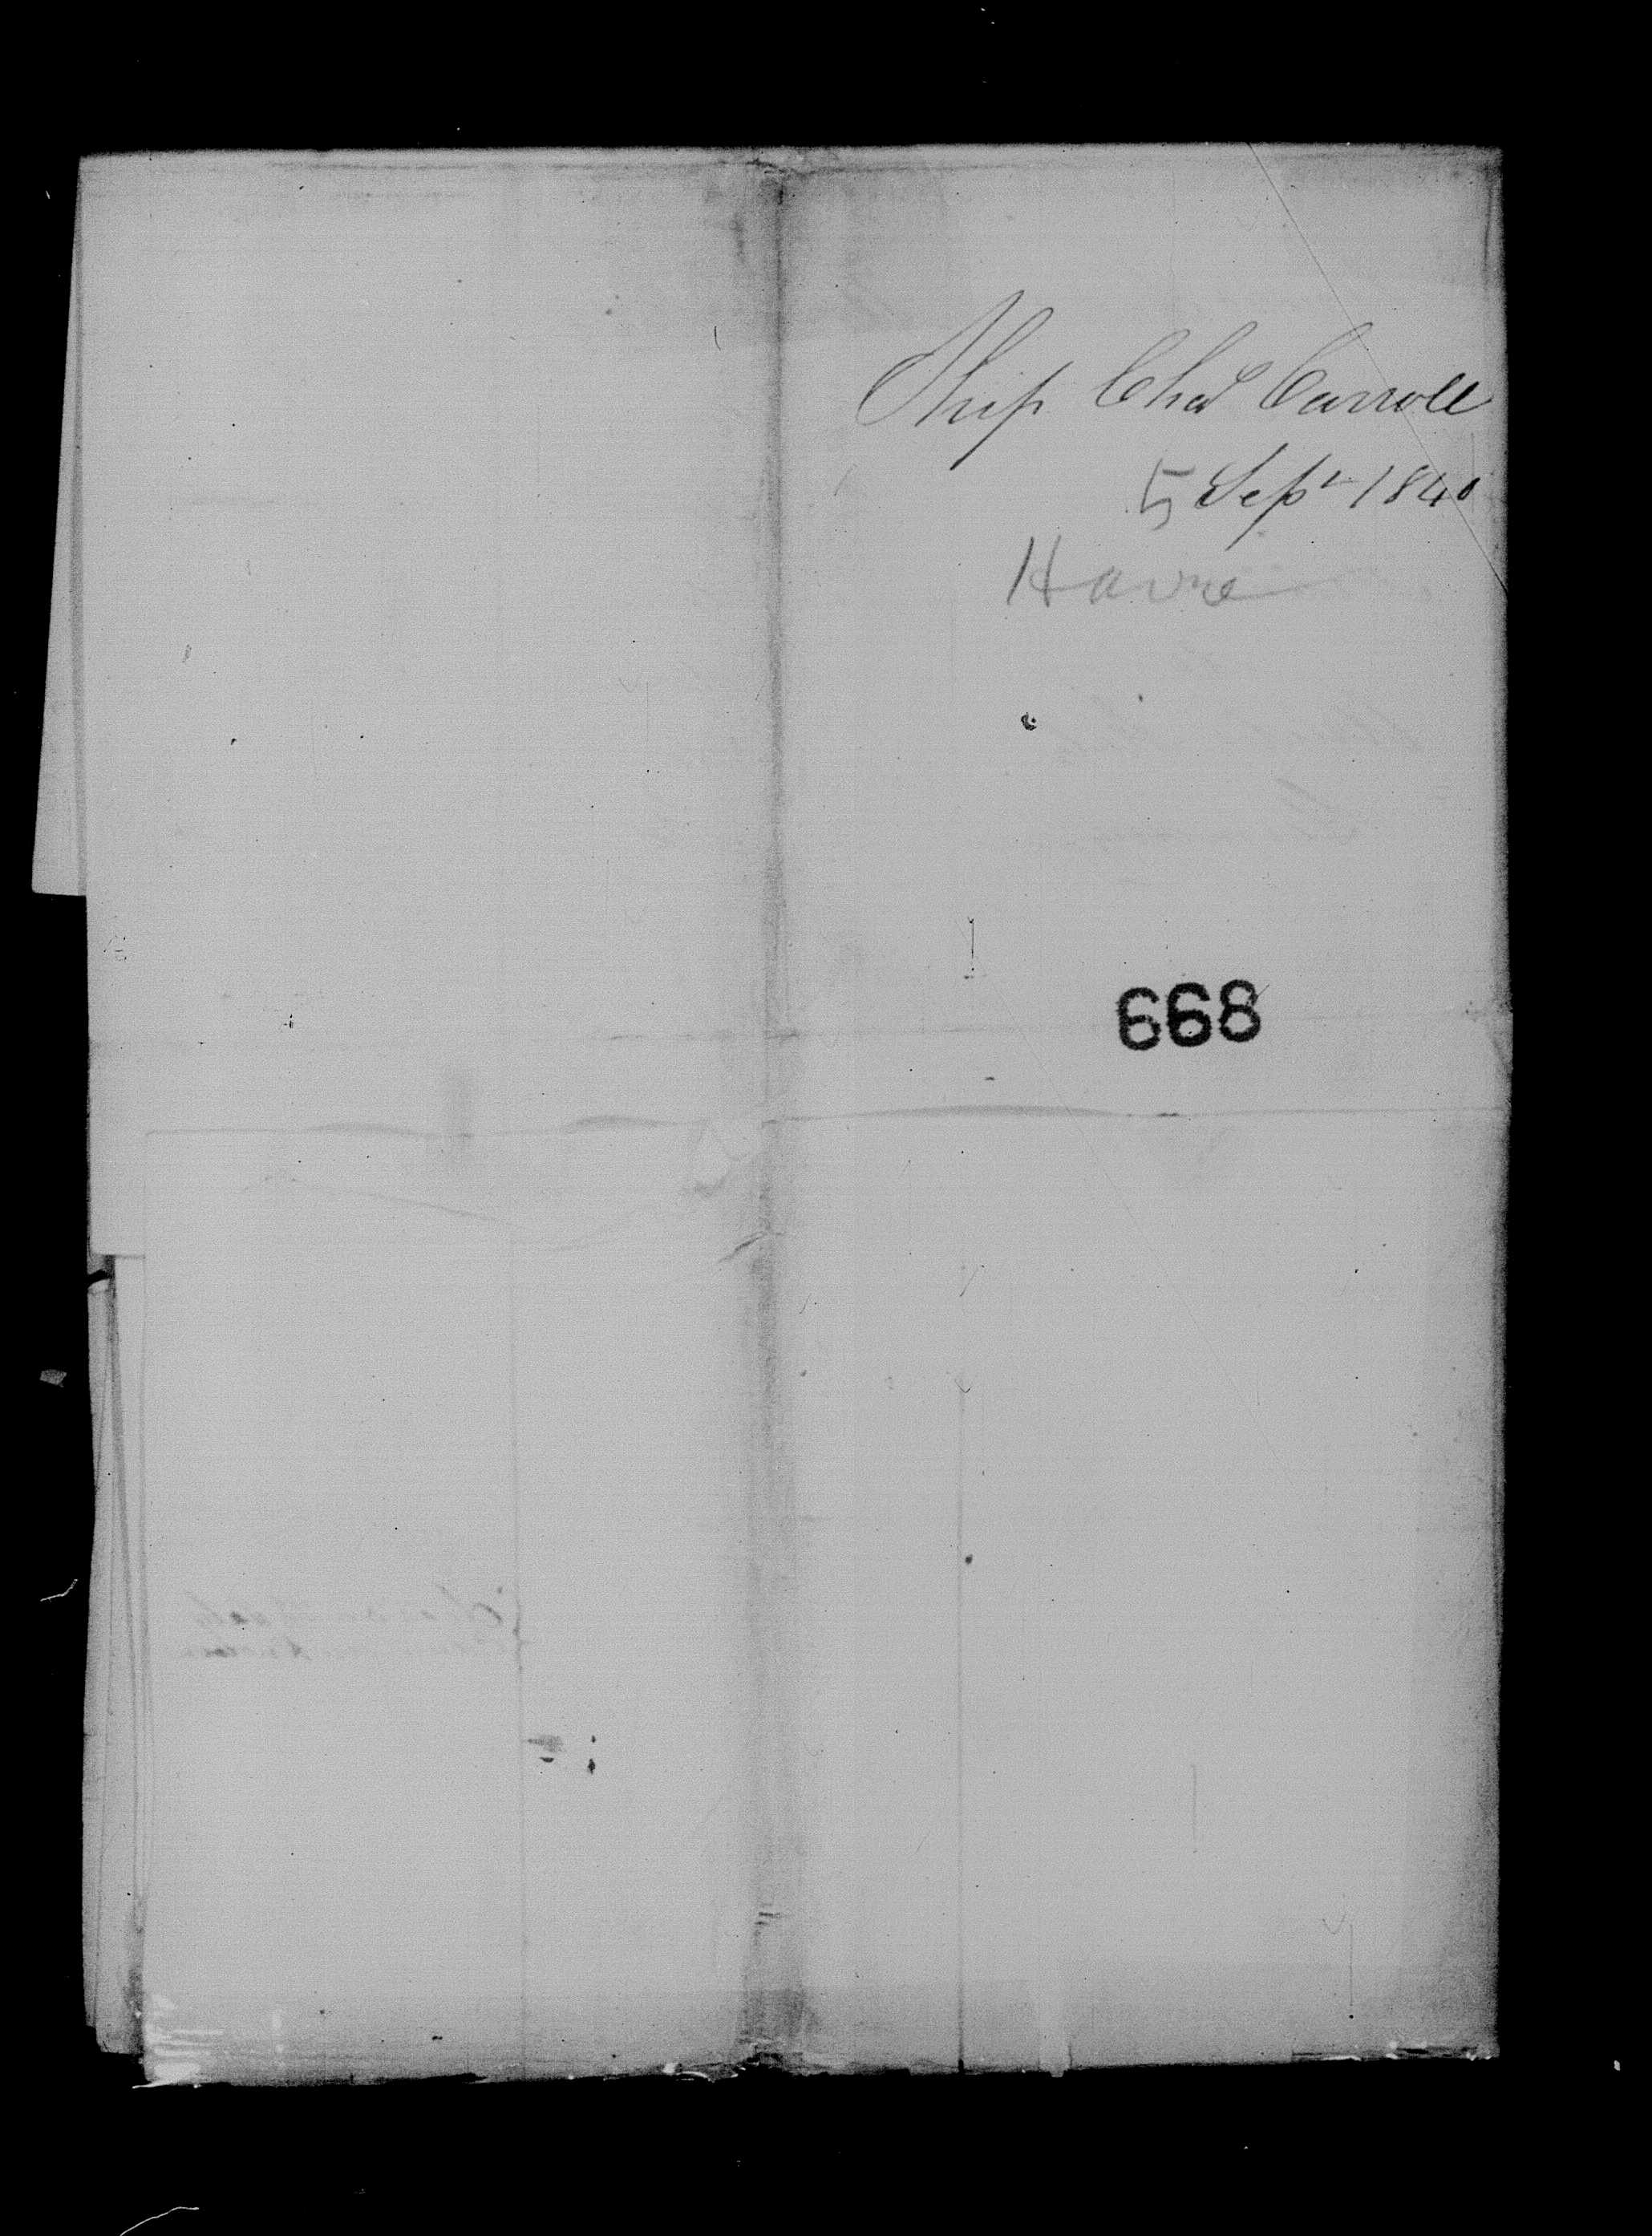 Ship Chas Carroll
5 Sept 1840
Havre
668